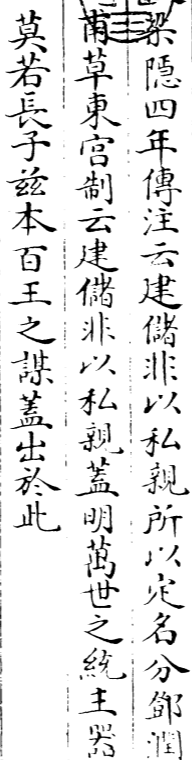 梁隱四年傳注云建儲非以私親所以定名分鄧潤
甫草東宫制云建儲非以私親蓋明萬世之統主器
莫若長子兹本百王之謀蓋出於此